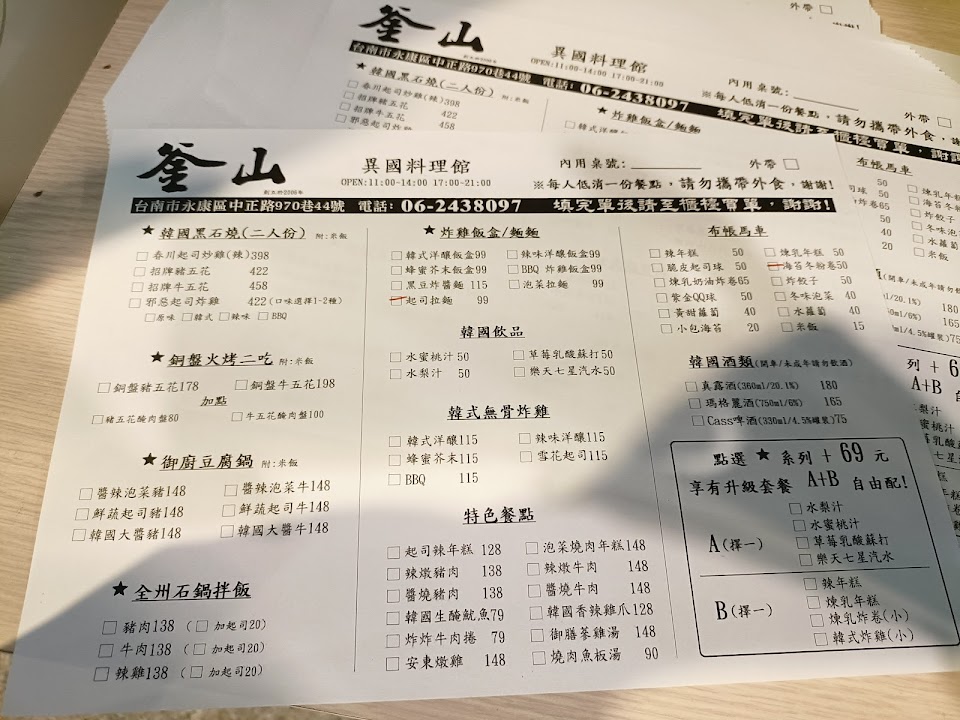 外帶
釜山
異國料理館
OPEN:11:00-14:00 17:00-21:00
內用桌號:
外帶
台南市永康區中正路970巷44號 電話: 06-2438097 填完單後請至櫃檯買單,謝謝!
※每人低消一份餐點,請勿攜帶外食,
★韓國黑石燒(二人份) 附:米飯
春川起司炒雞(辣)398
招牌豬五花 422
招牌牛五花 458
邪惡起司炸雞
★炸雞飯盒/麵麵
布帳馬車
釜山
異國料理館
OPEN:11:00-14:00 17:00-21:00
內用桌號:
外帶
※每人低消一份餐點,請勿攜帶外食,謝謝!
台南市永康區中正路970巷44號 電話: 06-2438097 填完單後請至櫃檯買單,謝謝!
★韓國黑石燒(二人份) 附:米飯
春川起司炒雞(辣)398
招牌豬五花 422
招牌牛五花 458
邪惡起司炸雞 422(口味選擇1-2種)
原味 韓式 辣味 BBQ
★銅盤火烤二吃 附:米飯
銅盤豬五花178 銅盤牛五花198
加點
豬五花醃肉盤80 牛五花醃肉盤100
★御廚豆腐鍋 附:米飯
醬辣泡菜豬148 醬辣泡菜牛148
鮮蔬起司豬148 鮮蔬起司牛148
韓國大醬豬148 韓國大醬牛148
★全州石鍋拌飯
豬肉138 (加起司20)
牛肉138 (加起司20)
辣雞138 (加起司20)
★炸雞飯盒/麵麵
韓式洋釀飯盒99 辣味洋釀飯盒99
蜂蜜芥末飯盒99 BBQ 炸雞飯盒99
黑豆炸醬麵 115 泡菜拉麵 99
起司拉麵 99
韓國飲品
水蜜桃汁50 草莓乳酸蘇打50
水梨汁 50 樂天七星汽水50
韓式無骨炸雞
韓式洋釀115 辣味洋釀115
蜂蜜芥末115 雪花起司115
BBQ 115
特色餐點
起司辣年糕 128 泡菜燒肉年糕148
辣燉豬肉 138 辣燉牛肉 148
醬燒豬肉 138 醬燒牛肉 148
韓國生醃魷魚79 韓國香辣雞爪128
炸炸牛肉捲 79 御膳蔘雞湯 148
安東燉雞 148 燒肉魚板湯 90
布帳馬車
辣年糕 50 煉乳年糕 50
脆皮起司球 50 海苔冬粉卷50
煉乳奶油炸卷65 炸餃子 50
紫金QQ球 50 冬味泡菜 40
黃甜蘿蔔 40 水蘿蔔 40
小包海苔 20 米飯 15
韓國酒類(開車/未成年請勿飲酒)
真露酒(360ml/20.1%) 180
瑪格麗酒(750ml/6%) 165
Cass啤酒(330ml/4.5%罐裝)75
點選 ★ 系列 + 69 元
享有升級套餐 A+B 自由配!
A(擇一)
水梨汁
水蜜桃汁
草莓乳酸蘇打
樂天七星汽水
B(擇一)
辣年糕
煉乳年糕
煉乳炸卷(小)
韓式炸雞(小)